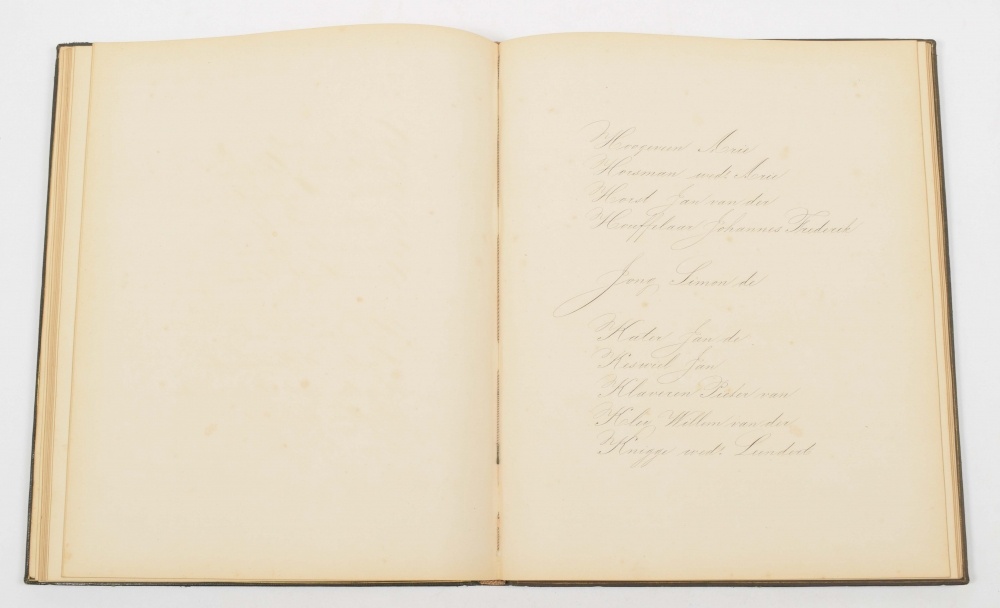 Hoogeveen Arie
Horsman wedr Arie
Horst Jan van der
Houffelaar Johannes Frederik
Jong Simon de
Kater Jan de
Keswiel Jan
Klaveren Pieter van
Kley Willem van der
Knegge wedr Leendert